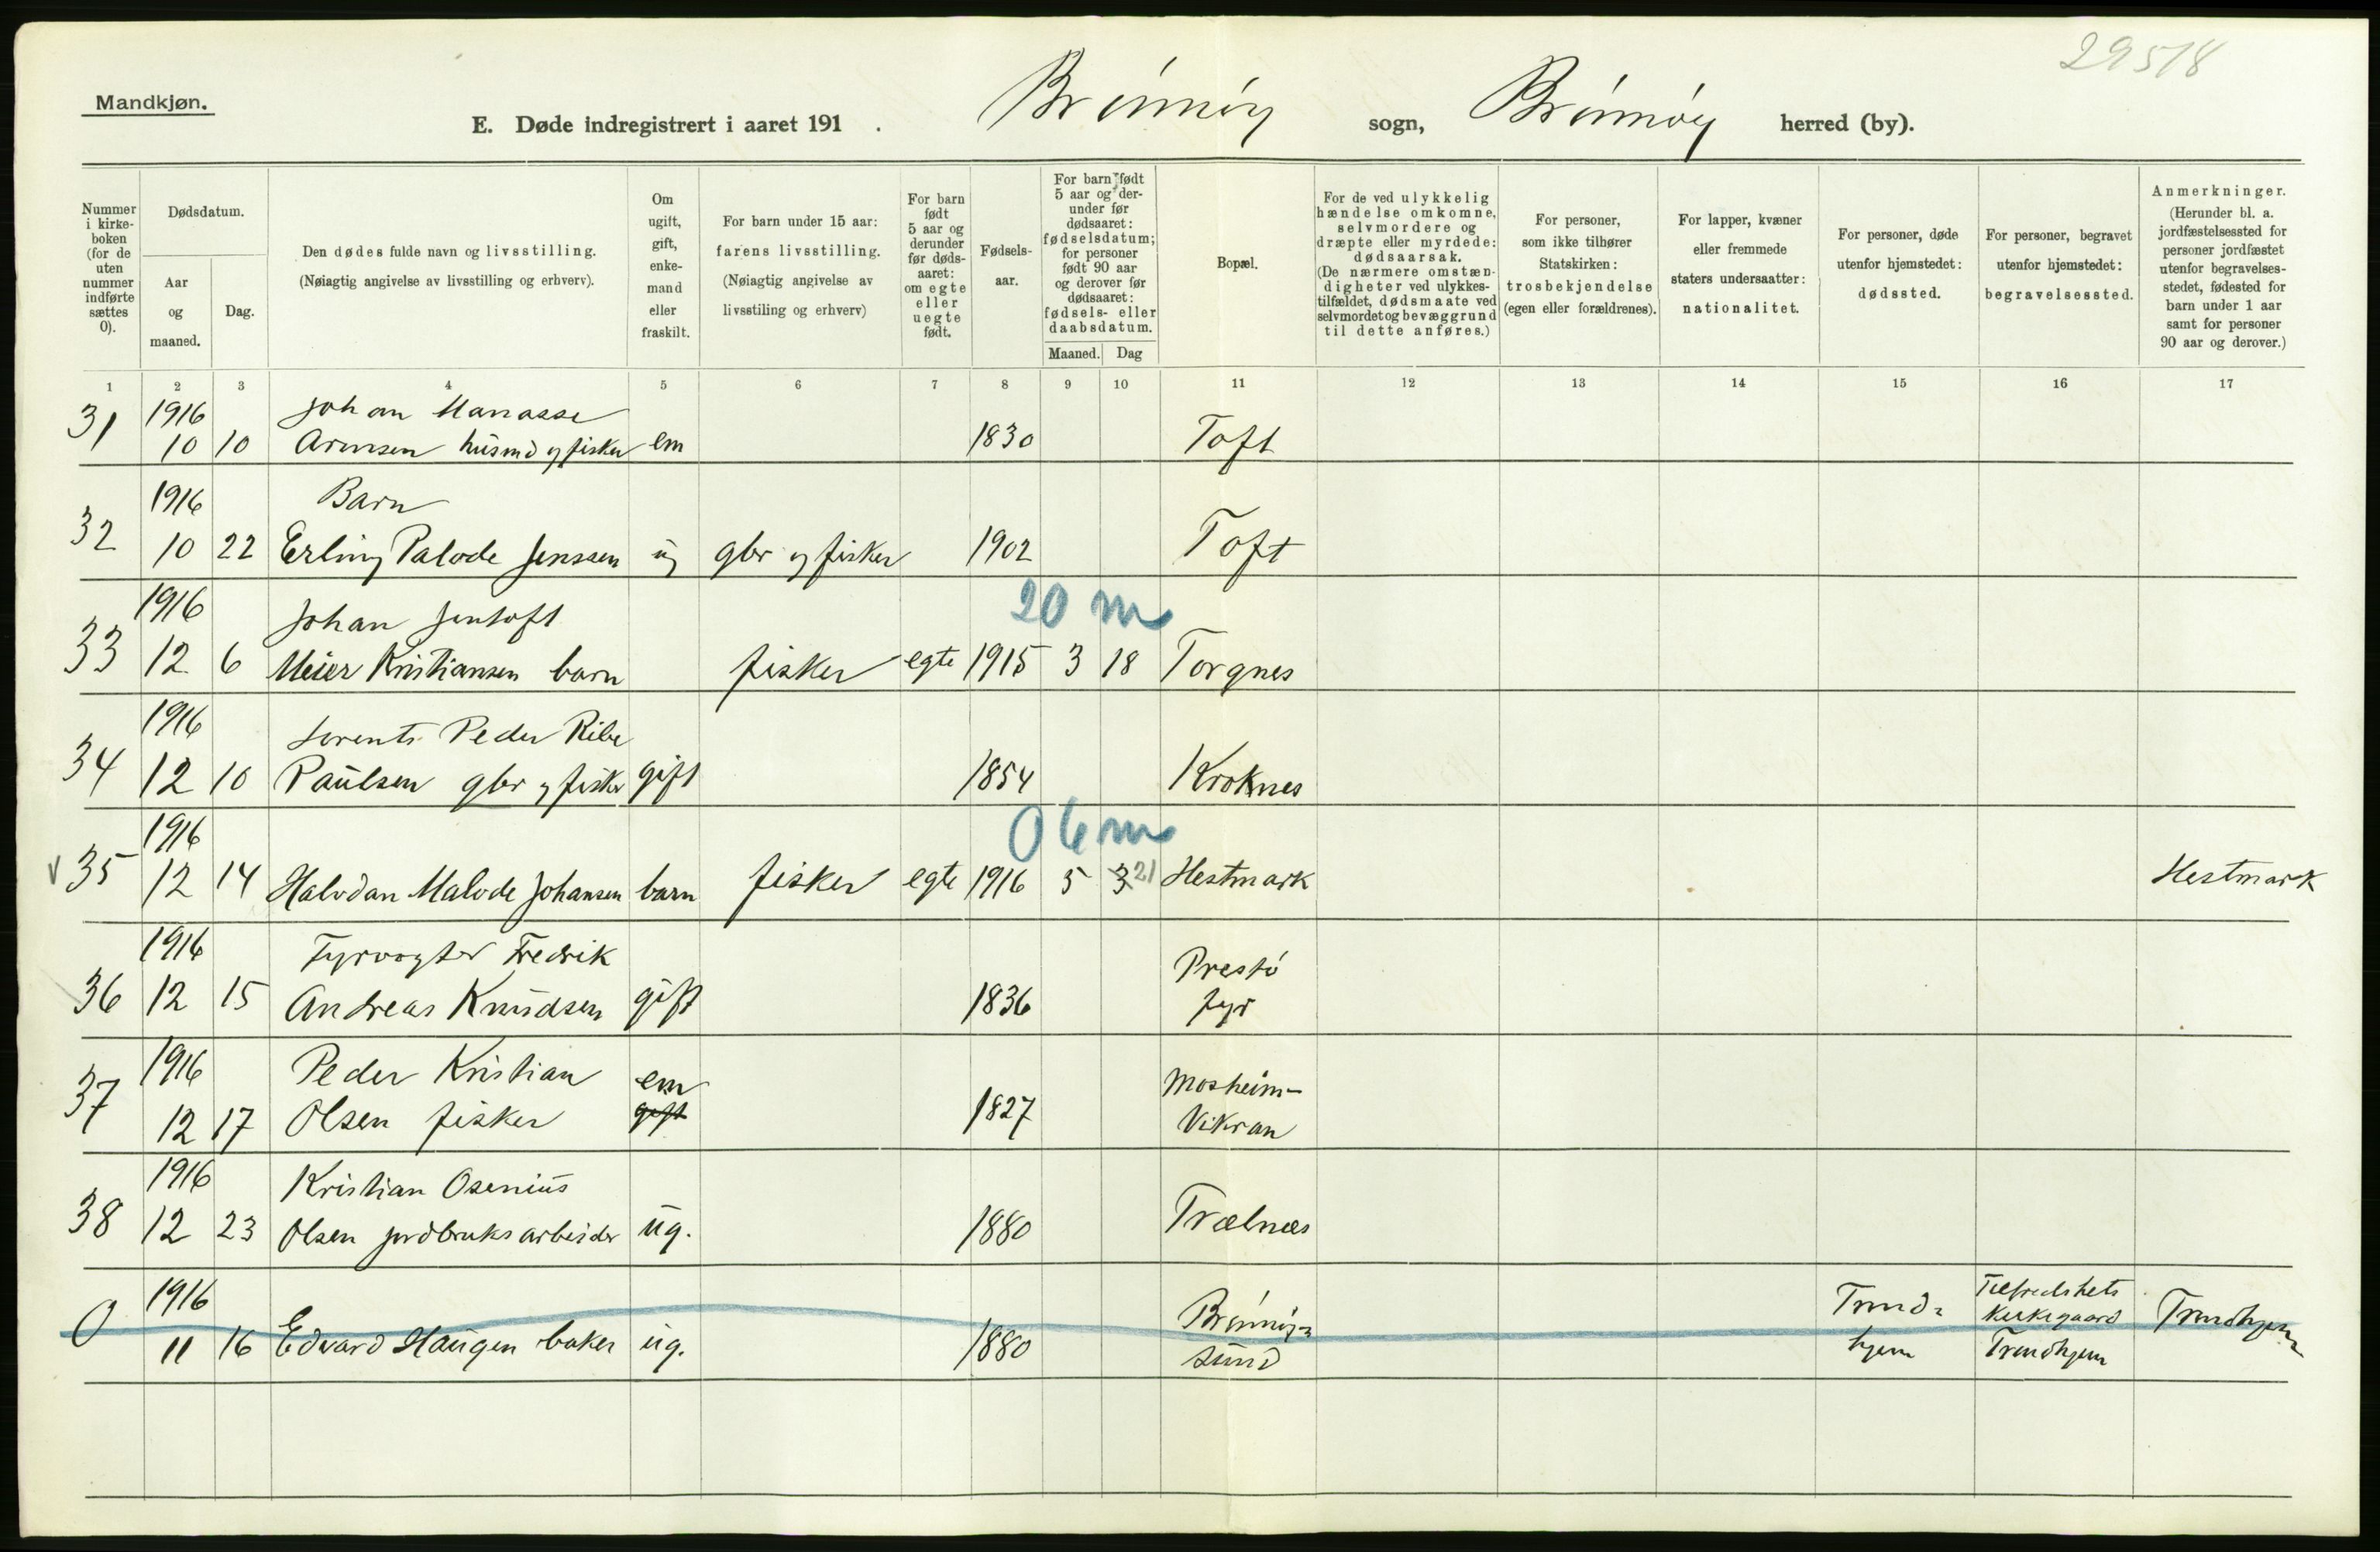 29518
Mandkjøn.
E. Døde indregistrert i aaret 191 . Brönnöy sogn, Brönnöy herred (by).
Nummer i kirke-boken (for de uten nummer indførte sættes 0).
Dødsdatum.
Aar og maaned.
Dag.
Den dødes fulde navn og livsstilling.
(Nøiagtig angivelse av livsstilling og erhverv).
Om ugift, gift, enke-mand eller fraskilt.
For barn under 15 aar:
farens livsstilling.
(Nøiagtig angivelse av
livsstiling og erhverv)
For barn født 5 aar og derunder før døds-aaret: om egte eller uegte født.
Fødsels-aar.
For barn født 5 aar og der-under før dødsaaret: fødselsdatum; for personer født 90 aar og derover før dødsaaret: fødsels- eller daabsdatum.
Maaned. Dag
Bopæl.
For de ved ulykkelig hændelse omkomne, selvmordere og dræpte eller myrdede: dødsaarsak. (De nærmere omstæn-digheter ved ulykkes-tilfældet, dødsmaate ved selvmordet og bevæggrund til dette anføres.)
For personer, som ikke tilhører Statskirken: trosbekjendelse (egen eller forældrenes).
For lapper, kvæner eller fremmede staters undersaatter: nationalitet.
For personer, døde utenfor hjemstedet: dødssted.
For personer, begravet utenfor hjemstedet: begravelsessted.
Anmerkninger.
(Herunder bl. a. jordfæstelsessted for personer jordfæstet utenfor begravelses-stedet, fødested for barn under 1 aar samt for personer 90 aar og derover.)
1 2 3 4 5 6 7 8 9 10 11 12 13 14 15 16 17
31 1916 Johan Manasse
10 10 Arntsen husmd og fisker em 1830 Toft
1916 Barn
32 10 22 Erling Palode Jenssen ug gbr og fisker 1902 Toft
1916 Johan Jentoft 20 m
33 12 6 Meier Kristiansen barn fisker egte 1915 3 18 Torgnes
1916 Lorents Peder Ribe
34 12 10 Paulsen gbr og fisker gift 1854 Kroknes
1916 0 6 m
v 35 12 14 Halvdan Malvde Johansen barn fisker egte 1916 5 3 21 Hestmark Hestmark
1916 Fyrvogter Fredrik Prestö
36 12 15 Andreas Knudsen gift 1836 fyr
1916 Peder Kristian em Mosheim-
37 12 17 Olsen fisker gift 1827 Vikran
1916 Kristian Osenius
38 12 23 Olsen jordbruksarbeider ug. 1880 Trælnes
0 1916 Brönnöy- Trond- Tilfredshets Kirkegaard Trondhjem
11 16 Edvard Haugen baker ug. 1880 sund hjem Trondhjem